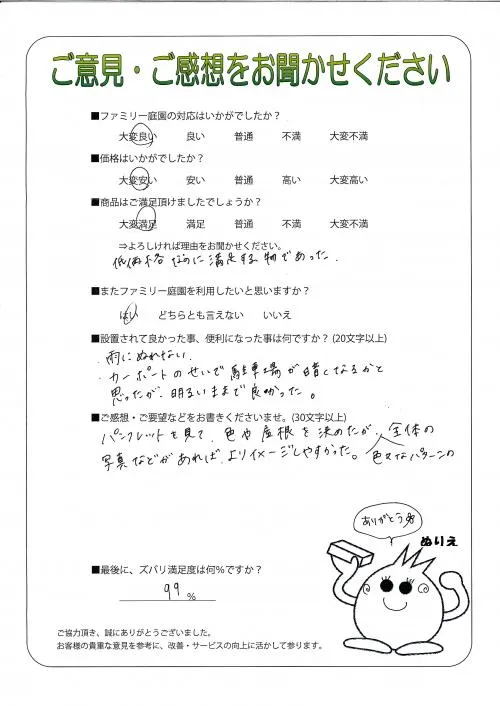 ご意見・ご感想をお聞かせください
■ファミリー庭園の対応はいかがでしたか？
大変良い　良い　普通　不満　大変不満
■価格はいかがでしたか？
大変安い　安い　普通　高い　大変高い
■商品はご満足頂けましたでしょうか？
大変満足　満足　普通　不満　大変不満
⇒よろしければ理由をお聞かせください。
低価格なのに満足する物であった。
■またファミリー庭園を利用したいと思いますか？
はい　どちらとも言えない　いいえ
■設置されて良かった事、便利になった事は何ですか？(20文字以上)
・雨にぬれない。
・カーポートのせいで駐車場が暗くなるかと
思ったが、明るいままで良かった。
■ご感想・ご要望などをお書きくださいませ。(30文字以上)
パンフレットを見て、色や屋根を決めたが、全体の
写真などがあれば、よりイメージしやすかった。色々なパターンの
ありがとう
ぬりえ
■最後に、ズバリ満足度は何％ですか？
99 %
ご協力頂き、誠にありがとうございました。
お客様の貴重な意見を参考に、改善・サービスの向上に活かして参ります。